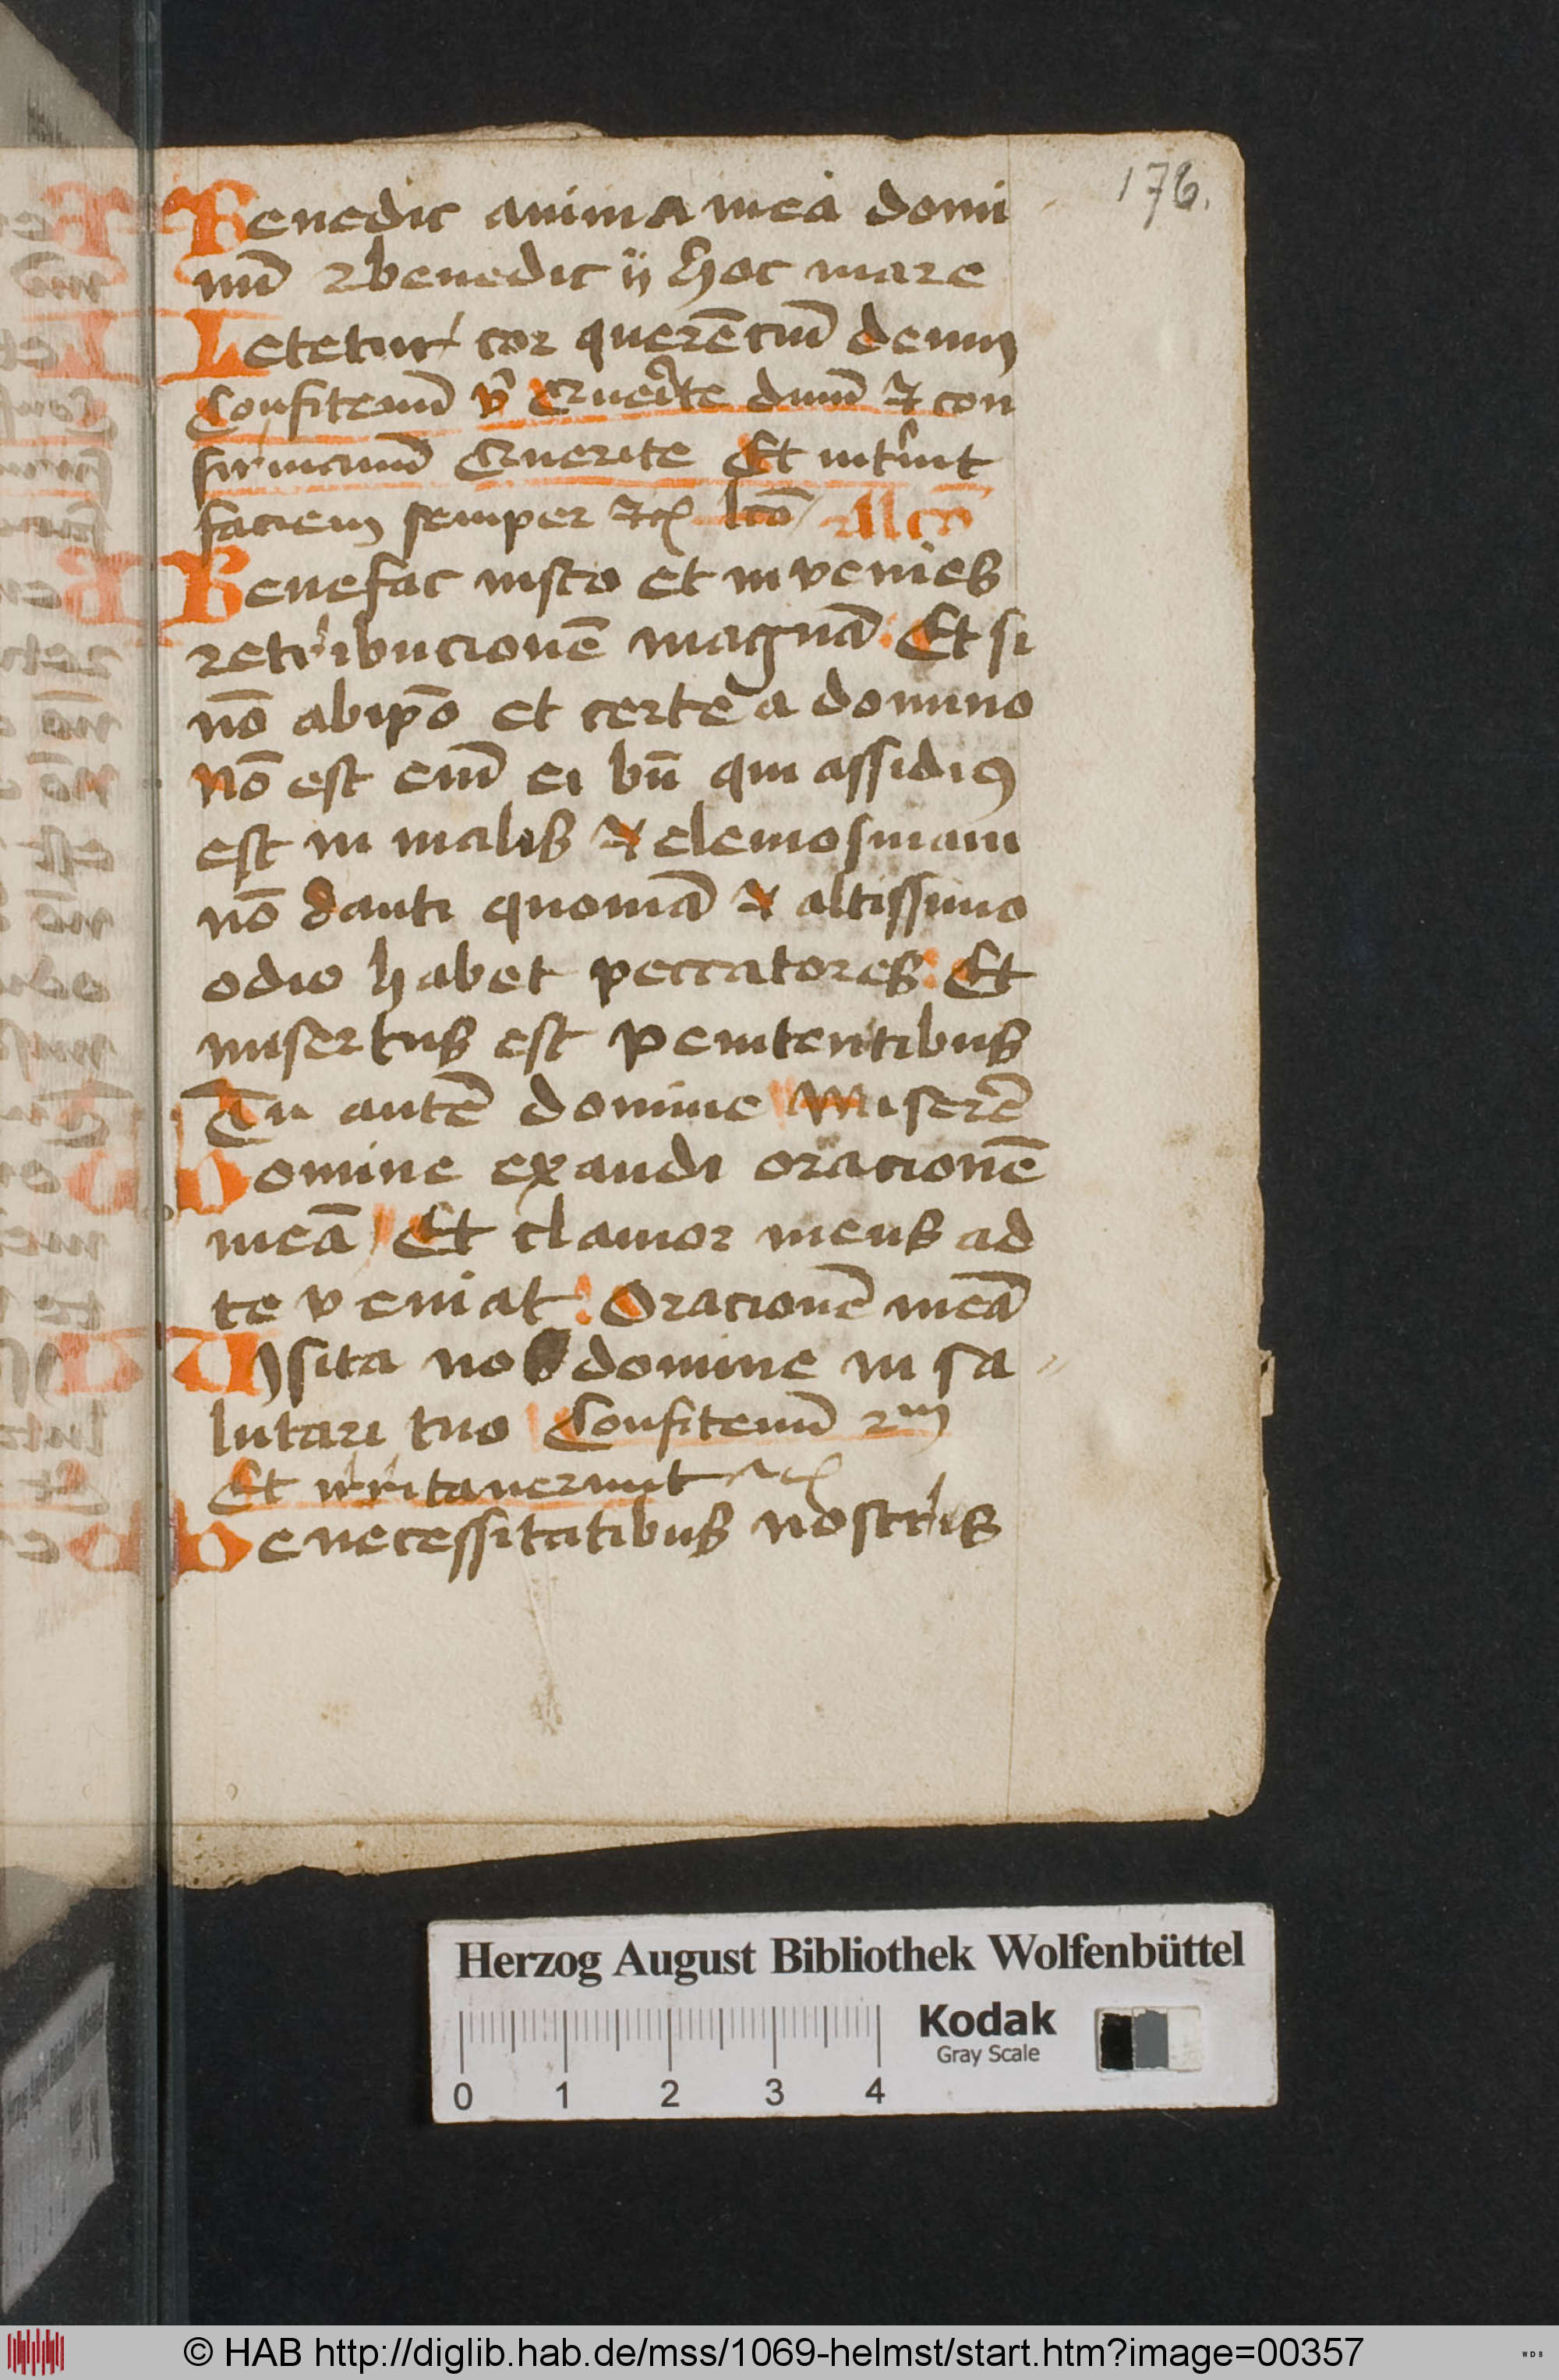 176.
Benedic anima mea domi
nū ⁊ benedic ij Hoc mare
Letetur cor querēciū deum
Confitemī Querite dnm̄ ⁊ con
firmamī Querite Et intrīnt
faciem semper ⁊c̄ lcō
Benefac iusto et invenies
retribucionē magnā Et si
nō ab ipō et certe a domino
Nō est em̄ ei bn̄ qui assidiꝰ
est in malis ⁊ elemosinam
nō danti quoniā ⁊ altissimo
odio habet peccatores Et
misertus est penitentibus
Tu autē domine Miserē
Domine exaudi oracionē
meā Et clamor meus ad
te veniat Oracionē meā
Visita nos domine in sa
lutari tuo Confitemī 2m
Et irritaverunt ⁊c̄
De necessitatibus nostris
Herzog August Bibliothek Wolfenbüttel
Kodak
Gray Scale
0 1 2 3 4
© HAB http://diglib.hab.de/mss/1069-helmst/start.htm?image=00357